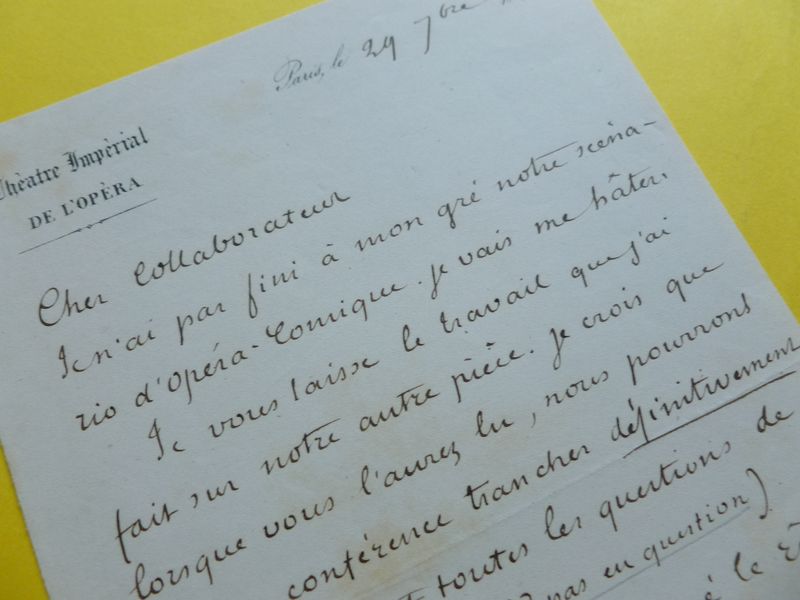 Paris, le 29 7bre
Théâtre Impérial
DE L'OPÉRA
Cher Collaborateur
Je n'ai pas fini à mon gré notre scéna-
rio d'Opéra-Comique. je vais me hâter.
Je vous laisse le travail que j'ai
fait sur notre autre pièce. je crois que
lorsque vous l'aurez lu, nous pourrons
conférence trancher définitivement
toutes les questions de
pas en question)
le